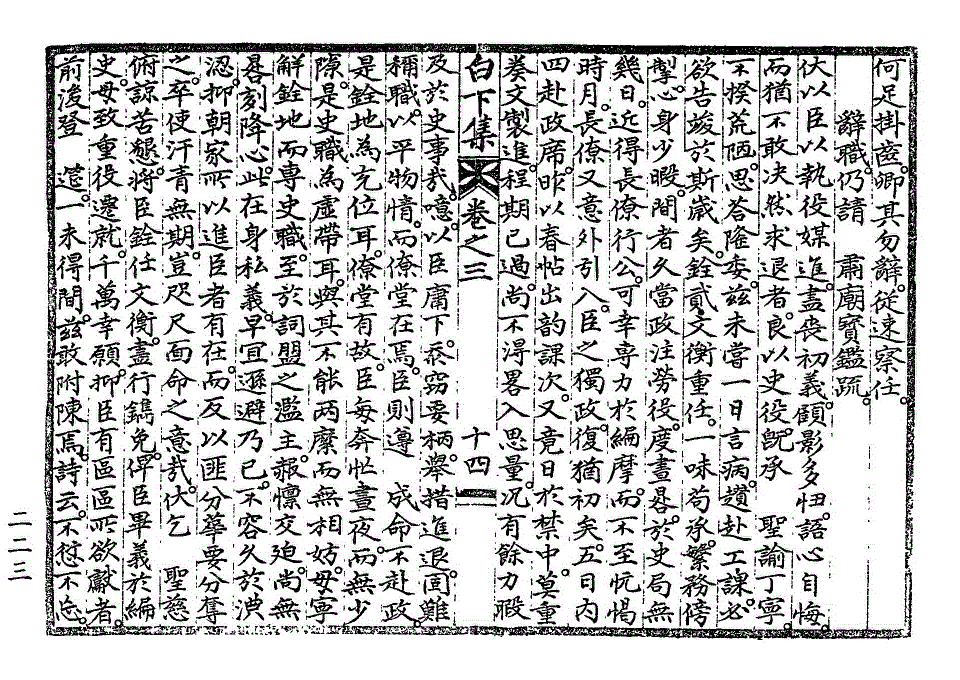 何足掛齒。卿其勿辭。從速察任。
辭職。仍請 肅廟寶鑑疏。
伏以臣以執役媒進。盡喪初義。顧影多忸。語心自悔。
而猶不敢决然求退者。良以史役。旣承 聖諭丁寧。
不揆荒陋。思答隆委。玆未嘗一日言病。趲赴工課。必
欲告竣於斯歲矣。銓貳文衡重任。一味苟承。繁務傍
掣。心身少暇。間者久當政注勞役。度晝晷。於史局無
幾日。近得長僚行公。可幸專力於編摩。而不至忨愒
時月。長僚又意外引入。臣之獨政。復猶初矣。五日內
四赴政席。昨以春帖出韵課次。又竟日於禁中。莫重
奏文製進。程期已過。尚不得畧入思量。况有餘力暇
白下集 卷之三 十四
及於史事㢤。噫。以臣庸下。忝竊要柄。擧措進退。固難
稱職。以平物情。而僚堂在焉。臣則遵 成命不赴政。
是銓地爲充位耳。僚堂有故。臣每奔忙晝夜。而無少
隙。是史職爲虛帶耳。與其不能兩縻而無相妨。毋寧
解銓地而專史職。至於詞盟之濫主。報懍交廹。尚無
晷刻降心。此在身私義。早宜遜避乃已。不容久於淟
涊。抑朝家所以進臣者有在。而反以匪分華要分奪
之。卒使汗青無期。豈咫尺面命之意㢤。伏乞 聖慈
俯諒苦懇。將臣銓任文衡。盡行鐫免。俾臣畢義於編
史。毋致重役遷就。千萬幸願。抑臣有區區所欲獻者。
前後登 筵。一未得間。玆敢附陳焉。詩云。不愆不忘。
二二三